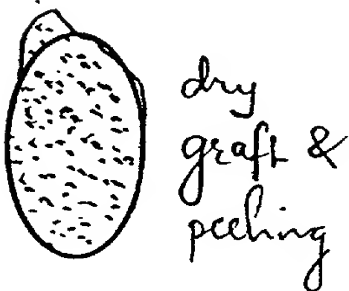 dry
graft &
peeling